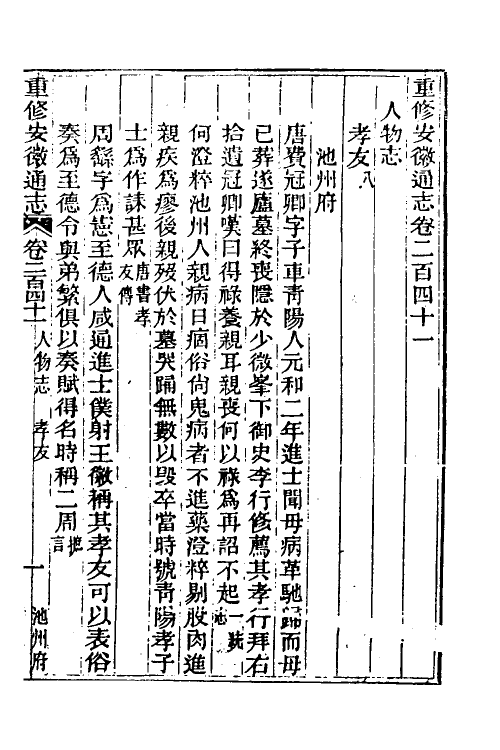 重修安徽通志卷二百四十一
人物志
孝友八
池州府
唐費冠卿字子車靑陽人元和二年進士聞母病革馳歸而母
已葬遂廬墓終喪隱於少微峯下御史李行修薦其孝行拜右
拾遺冠卿嘆曰得祿養親耳親喪何以祿爲再詔不起一統志
何澄粹池州人親病日痼俗尙鬼病者不進藥澄粹剔股肉進
親疾爲瘳後親歿伏於墓哭踊無數以毀卒當時號靑陽孝子
士爲作誄甚眾唐書孝友傳
周繇字爲憲至德人咸通進士僕射王徽稱其孝友可以表俗
奏爲至德令與弟繁俱以奏賦得名時稱二周摭言
重修安徽通志 卷二百四十一 人物志 孝友 一 池州府